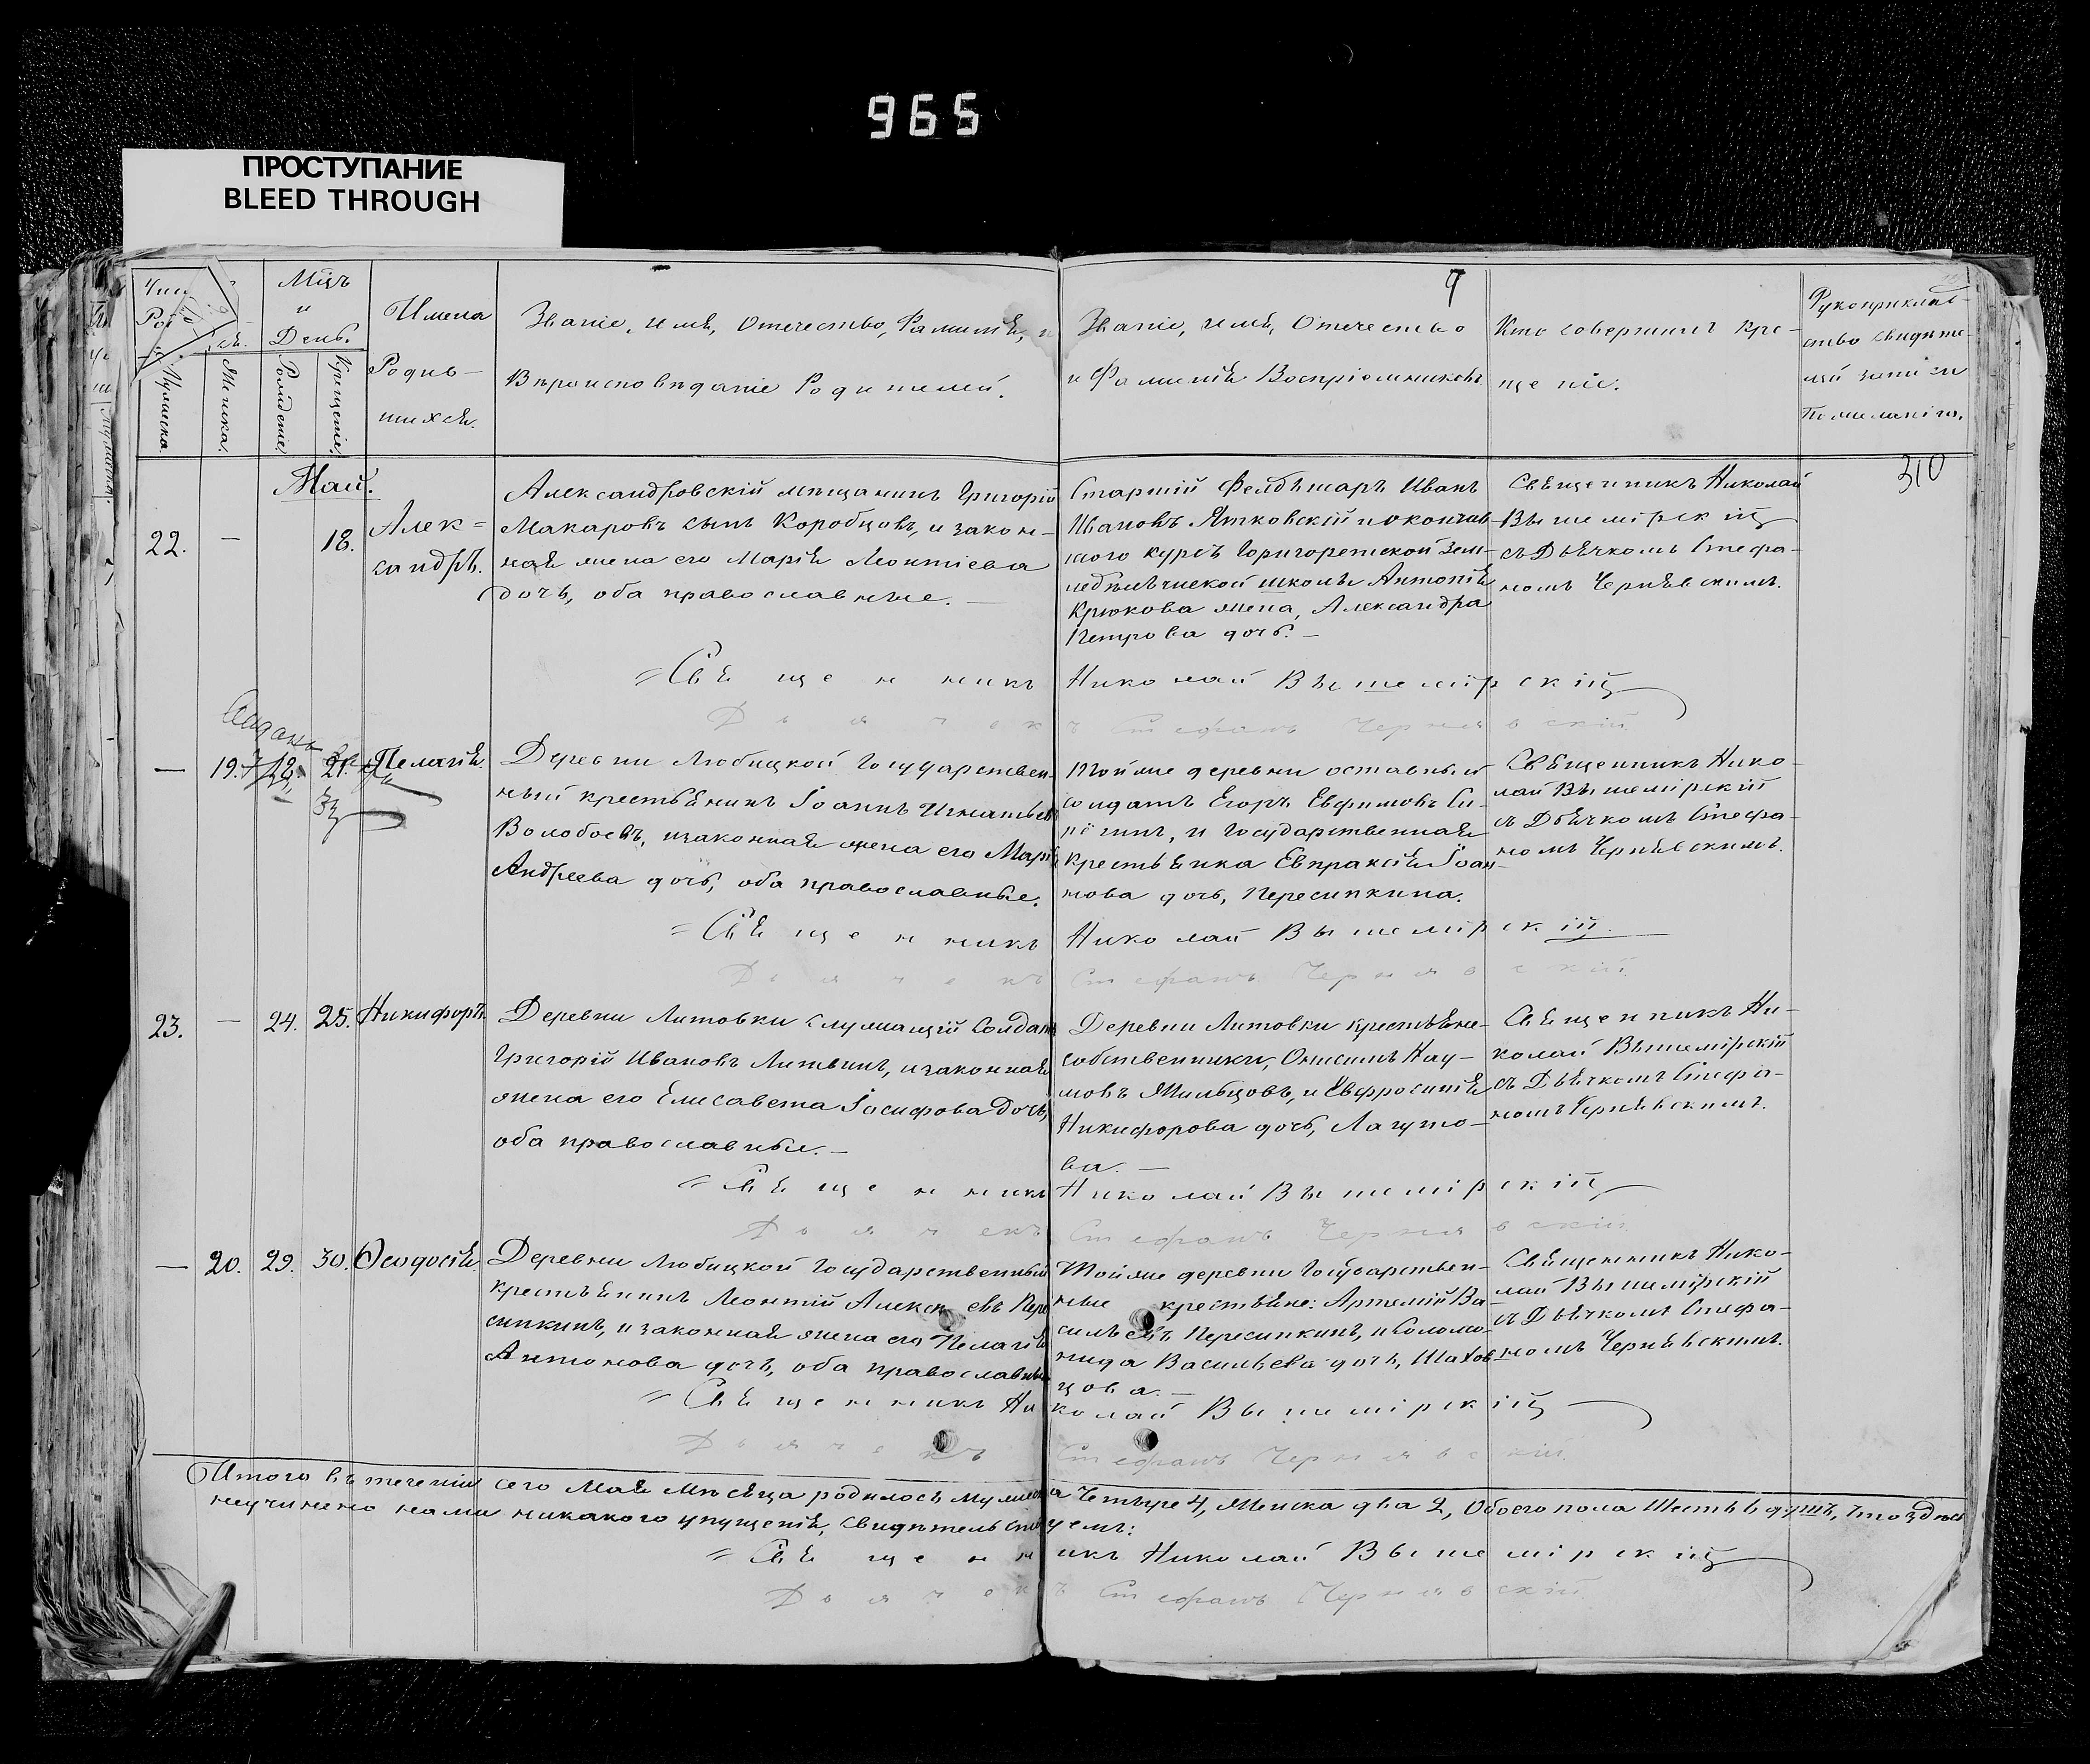 965
ПРОСТУПАНИЕ
BLEED THROUGH
9
310
Мцъ
и
День.
Мужеска.
Женска.
Рожденіе.
Крещеніе.
Имена
Родив-
шихся.
Званіе, имя, Отечество, Фамилія, и
Вѣроисповѣданіе Родителей.
Званіе, имя, Отечество
и Фамилія Воспріемниковъ
Кто совершилъ кре-
щеніе.
Рукоприклад-
ство свидѣте-
лей записи
По желанію.
Май.
22.
—
18.
Алек=
сандръ.
Александровскій мѣщанинъ Григорій
Макаровъ сынъ Коробцовъ, и закон-
ная жена его Марія Леонтіева
дочь, оба православные. —
Старшій Фелдъшаръ Иванъ
Ивановъ Ятковскій и окончив-
шого курсъ Горигорецкой Зем-
ледѣльческой школы Антонія
Крюкова жена, Александра
Петрова дочь. —
Священникъ Николай
Вышемірскій
съ Дьячкомъ Стефа-
номъ Чернявскимъ.
= Священникъ Николай Вышемірскій
Дьячекъ Стефанъ Чернявскій
—
19.
21.
Пелагія.
Деревни Любицкой Государствен-
ный крестьянинъ Іоаннъ Игнатьевъ
Волобоевъ, и законная жена его Марія
Андреева дочь, оба православные.
Тойже деревни отставный
солдатъ Егоръ Евфимовъ
и Государственная
крестьянка Евпраксія Іоан-
нова дочь, Пересипкина.
Священникъ Нико-
лай Вышемірскій
съ Дьячкомъ Стефа-
номъ Чернявскимъ.
= Священникъ Николай Вышемірскій.
Дьячекъ Стефанъ Чернявскій.
23.
—
24.
25.
Никифоръ.
Деревни Литовки служащій Солдатъ
Григорій Ивановъ Литвинъ, и законная
жена его Елисавета Іосифова Дочь,
оба православные. —
Деревни Литовки крестьяне-
собственники, Онисимъ Нау-
мовъ Жильцовъ, и Евфросинія
Никифорова дочь, Лагуто-
ва. —
Священникъ Ни-
колай Вышемірскій
съ Дьячкомъ Стефа-
номъ Чернявскимъ.
= Священникъ Николай Вышемірскій
Дьячекъ Стефанъ Чернявскій.
—
20.
29.
30.
Ѳеодосія.
Деревни Любицкой Государственный
крестьянинъ Леонтій Алексѣевъ Пере
сипкинъ, и законная жена его Пелагія
Антонова дочь, оба православные
Тойже деревни Государствен-
ные крестьяне: Артемій Ва-
сильевъ Пересипкинъ, и Соломо-
нида Васильева дочь, Шахов
цова. —
Священникъ Нико-
лай Вышемірскій
съ Дьячкомъ Стефа-
номъ Чернявскимъ.
= Священникъ Николай Вышемірскій
Дьячекъ Стефанъ Чернявскій.
Итого въ теченіи сего Мая Мѣсяца родилось мужеска Четыре 4, Женска два 2, Обоего пола Шесть 6 душъ, что здѣсь
неучинено нами никакого упущенія, свидѣтельствуемъ:
= Священникъ Николай Вышемірскій
Дьячекъ Стефанъ Чернявскій